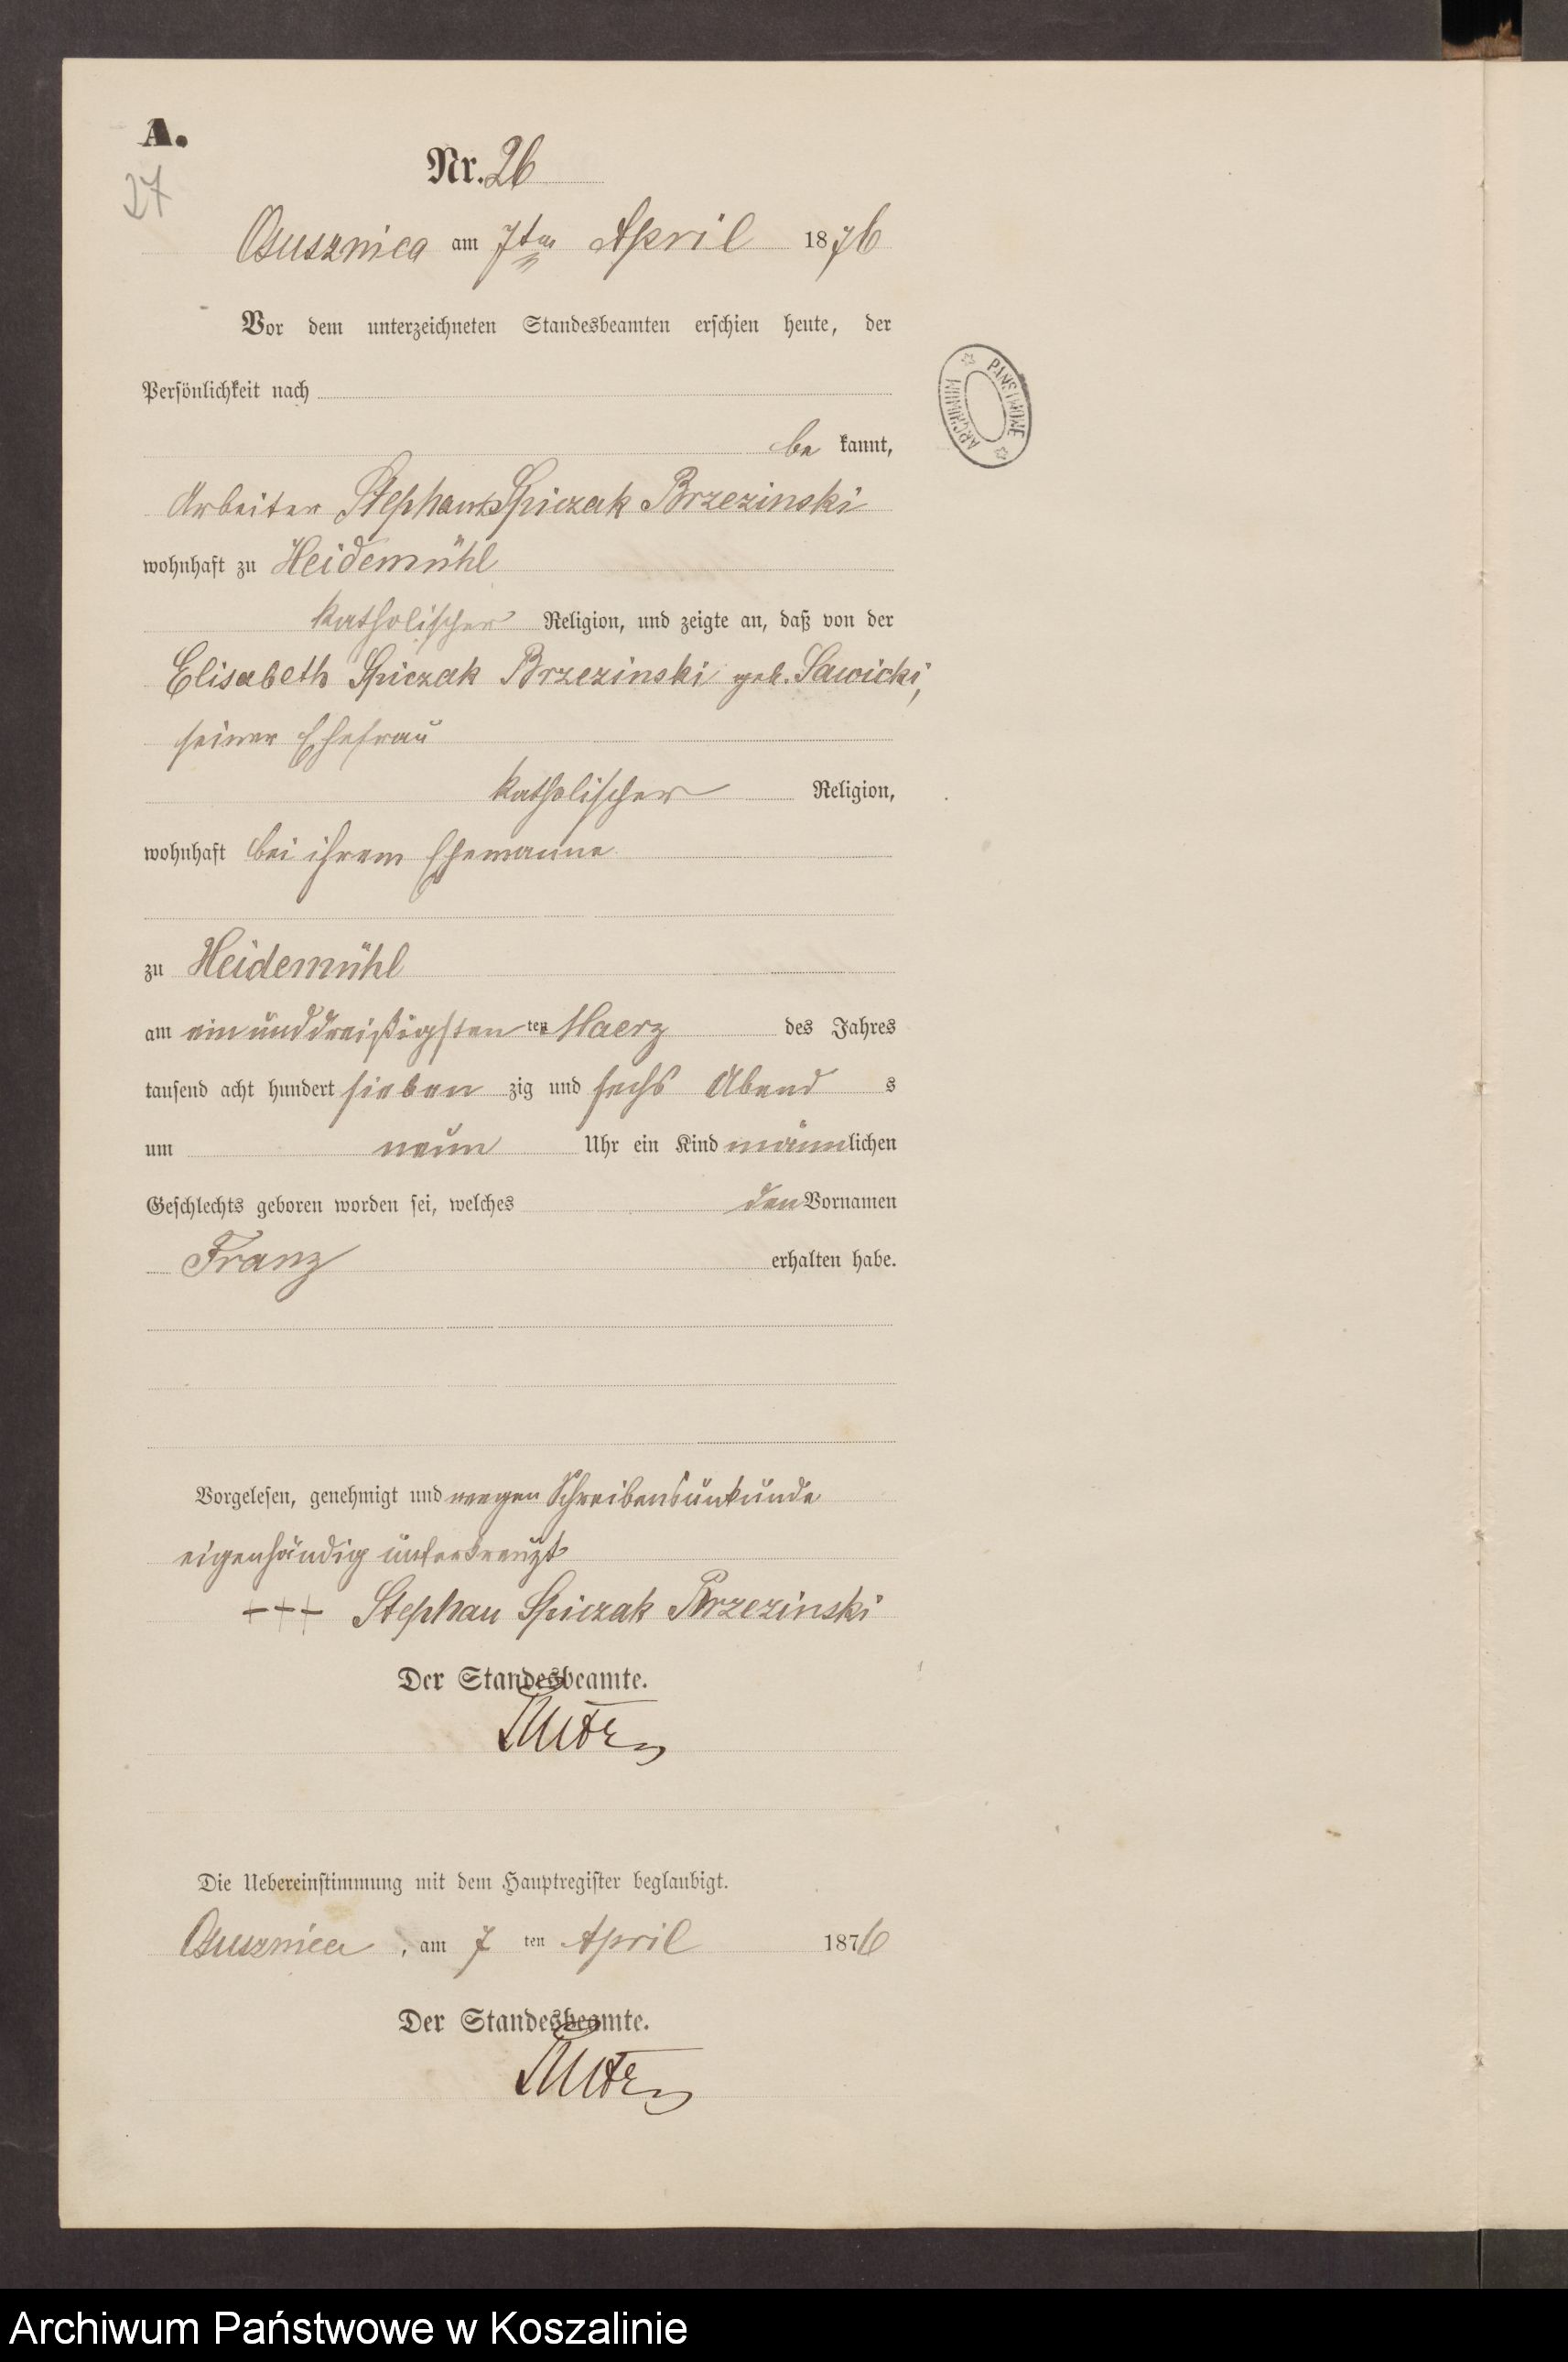 A.
27
Nr. 26
Osusznica am 7ten April 1876
Vor dem unterzeichneten Standesbeamten erschien heute, der
Persönlichkeit nach
be kannt,
Arbeiter Stephan Spiczak Brzezinski
wohnhaft zu Heidemühl
katholischer Religion, und zeigte an, daß von der
Elisabeth Spiczak Brzezinski geb. Sawicki,
seiner Ehefrau
katholischer Religion,
wohnhaft bei ihrem Ehemanne
zu Heidemühl
am ein und dreißigsten ten Maerz des Jahres
tausend acht hundert sieben zig und sechs Abend s
um neun Uhr ein Kind männlichen
Geschlechts geboren worden sei, welches den Vornamen
Franz erhalten habe.
Vorgelesen, genehmigt und wegen Schreibensunkunde
eigenhändig unterkreuzt
+++ Stephan Spiczak Brzezinski
Der Standesbeamte.
Die Uebereinstimmung mit dem Hauptregister beglaubigt.
Osusznica, am 7 ten April 1876
Der Standesbeamte.
ARCHIWUM PAŃSTWOWE
Archiwum Państwowe w Koszalinie